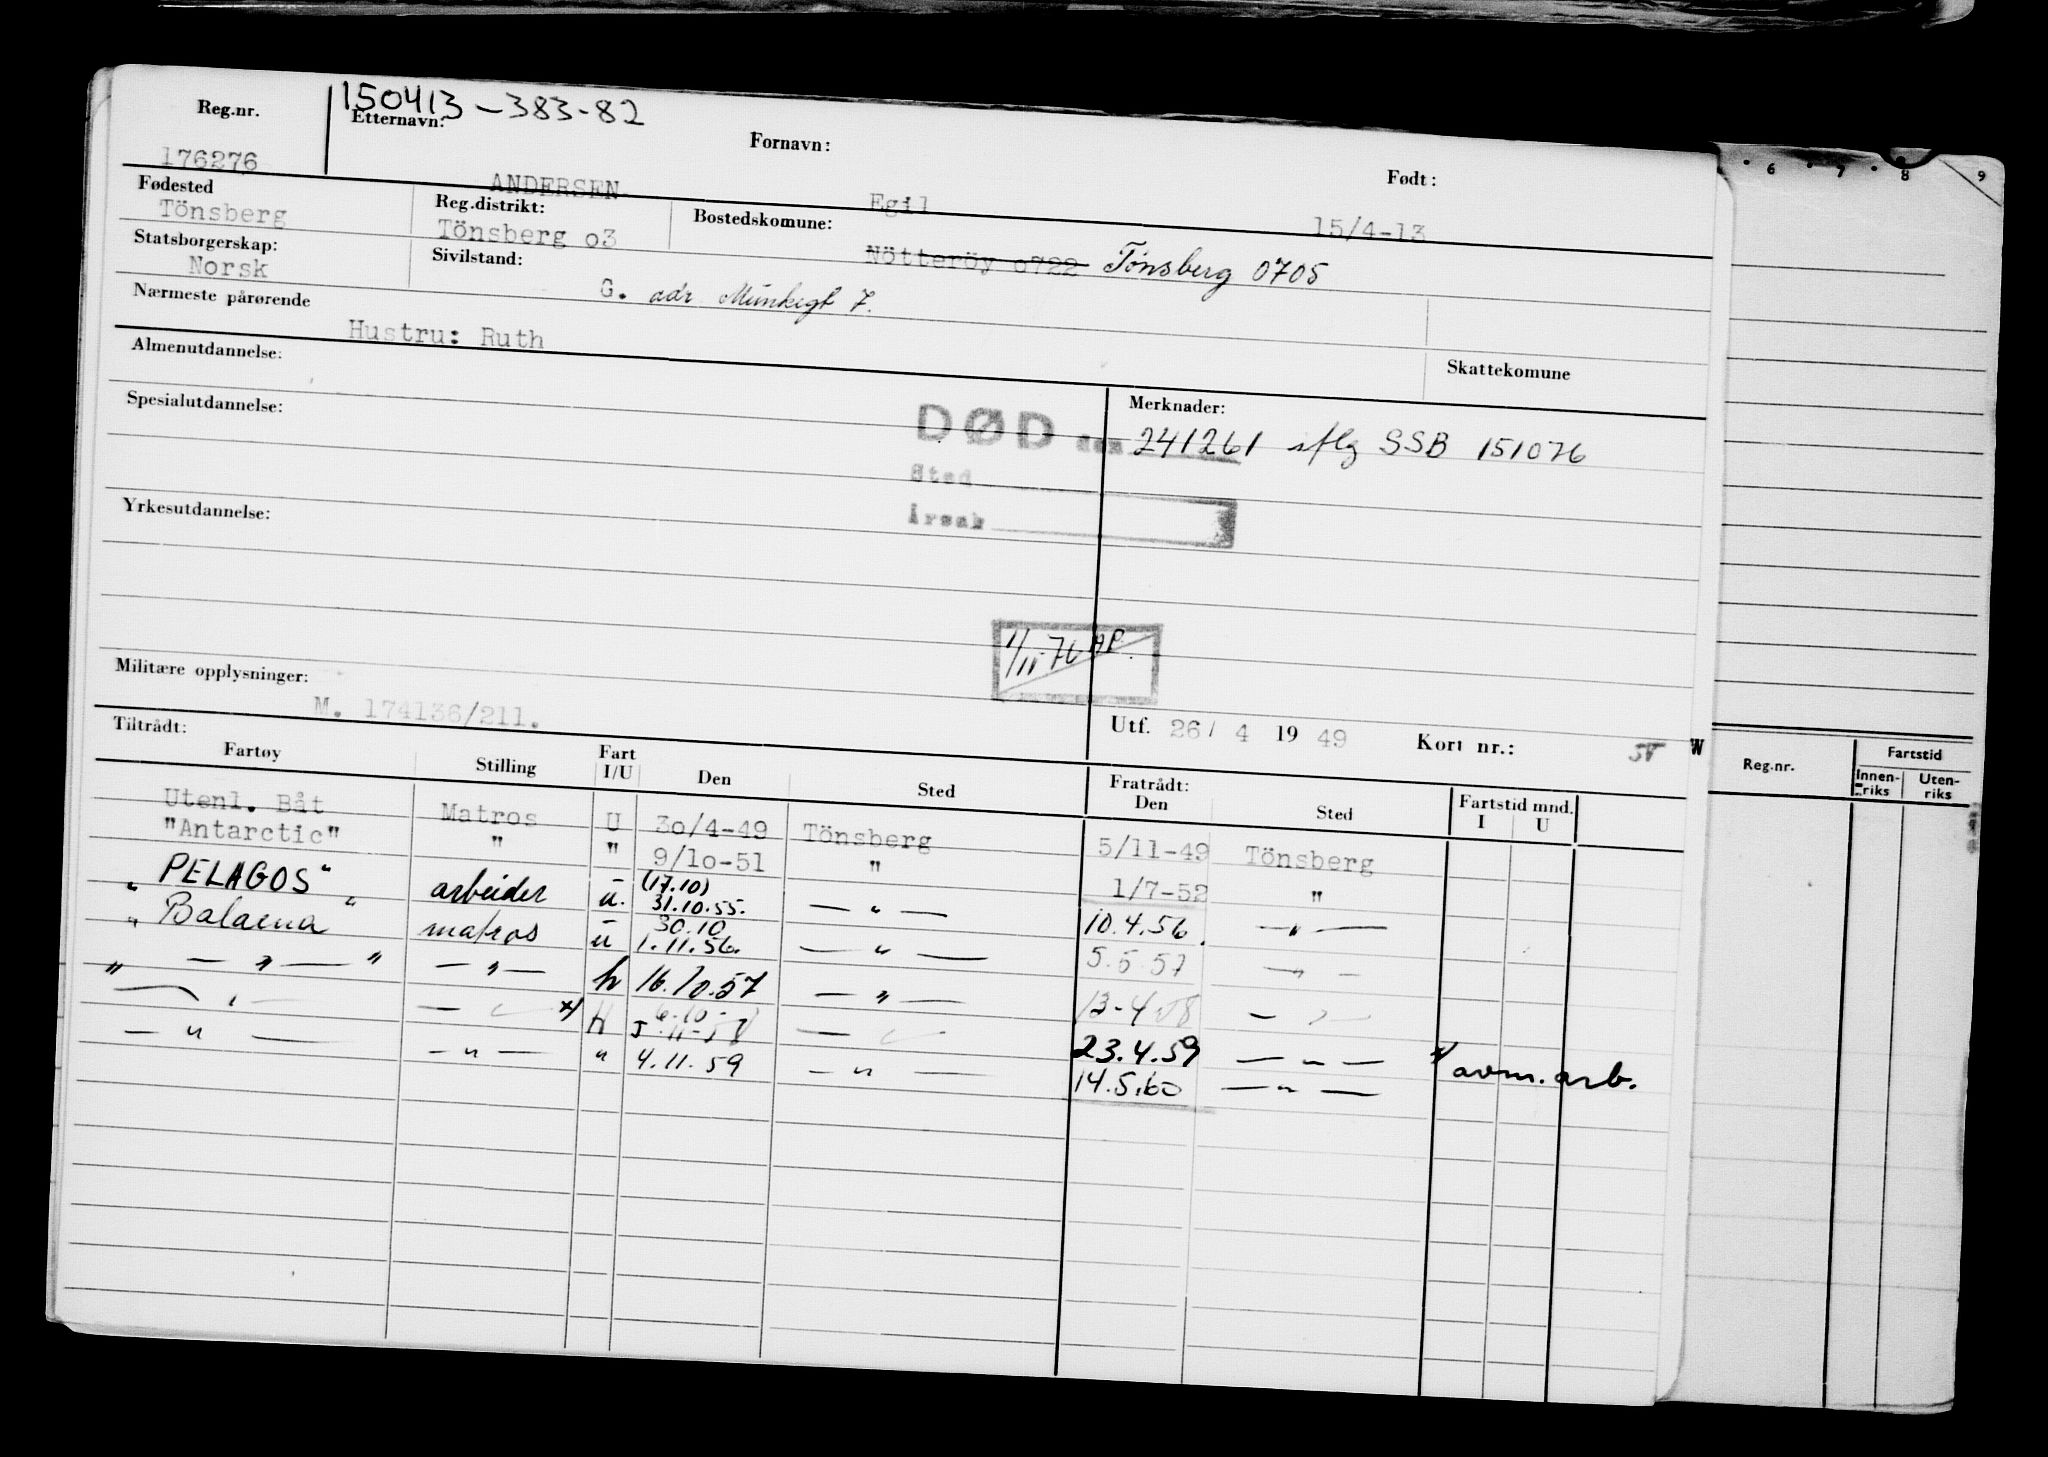 150413-383-82
Reg.nr. Etternavn: Fornavn: Født:
176276 ANDERSEN Egil 15/4-13
Fødested Reg.distrikt: Bostedskomune:
Tönsberg Tönsberg o3 Nötteröy o722 Tönsberg 0705
Statsborgerskap: Sivilstand:
Norsk G. adr Munkegt 7.
Nærmeste pårørende
Hustru: Ruth
Almenutdannelse: Skattekomune
Spesialutdannelse: Merknader:
DØD den 241261 iflg SSB 151076
Sted
Årsak
Yrkesutdannelse:
1/11-76 AP.
Militære opplysninger:
M. 174136/211.
Utf. 26/ 4 19 49 Kort nr.: W
Tiltrådt: Fratrådt:
Fartøy Stilling Fart I/U Den Sted Den Sted Fartstid mnd. I U
Utenl. Båt Matros U 30/4-49 Tönsberg 5/11-49 Tönsberg
"Antarctic" " " 9/10-51 " 1/7-52 "
"PELAGOS" arbeider u. (17.10) 31.10.55. — " — 10.4.56. — " —
"Balaena" matros u 30.10 1.11.56. — " — 5.5.57 — " —
" — " — " — " — h 16.10.57 — " — 13-4 58 — " —
— " — — " — x) H 5-11-58 — " — 23.4.59 — " — x) avm. arb.
— " — — " — " 4.11.59 — " — 14.5.60 — " —
6 7 8 9
Reg.nr. Fartstid
Innen-riks Uten-riks